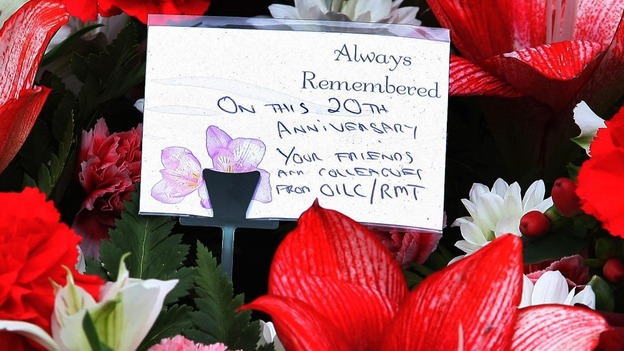 Always
Remembered
ON THIS 20TH
ANNIVERSARY
YOUR FRIENDS
AND COLLEAGUES
FROM OILC/RMT